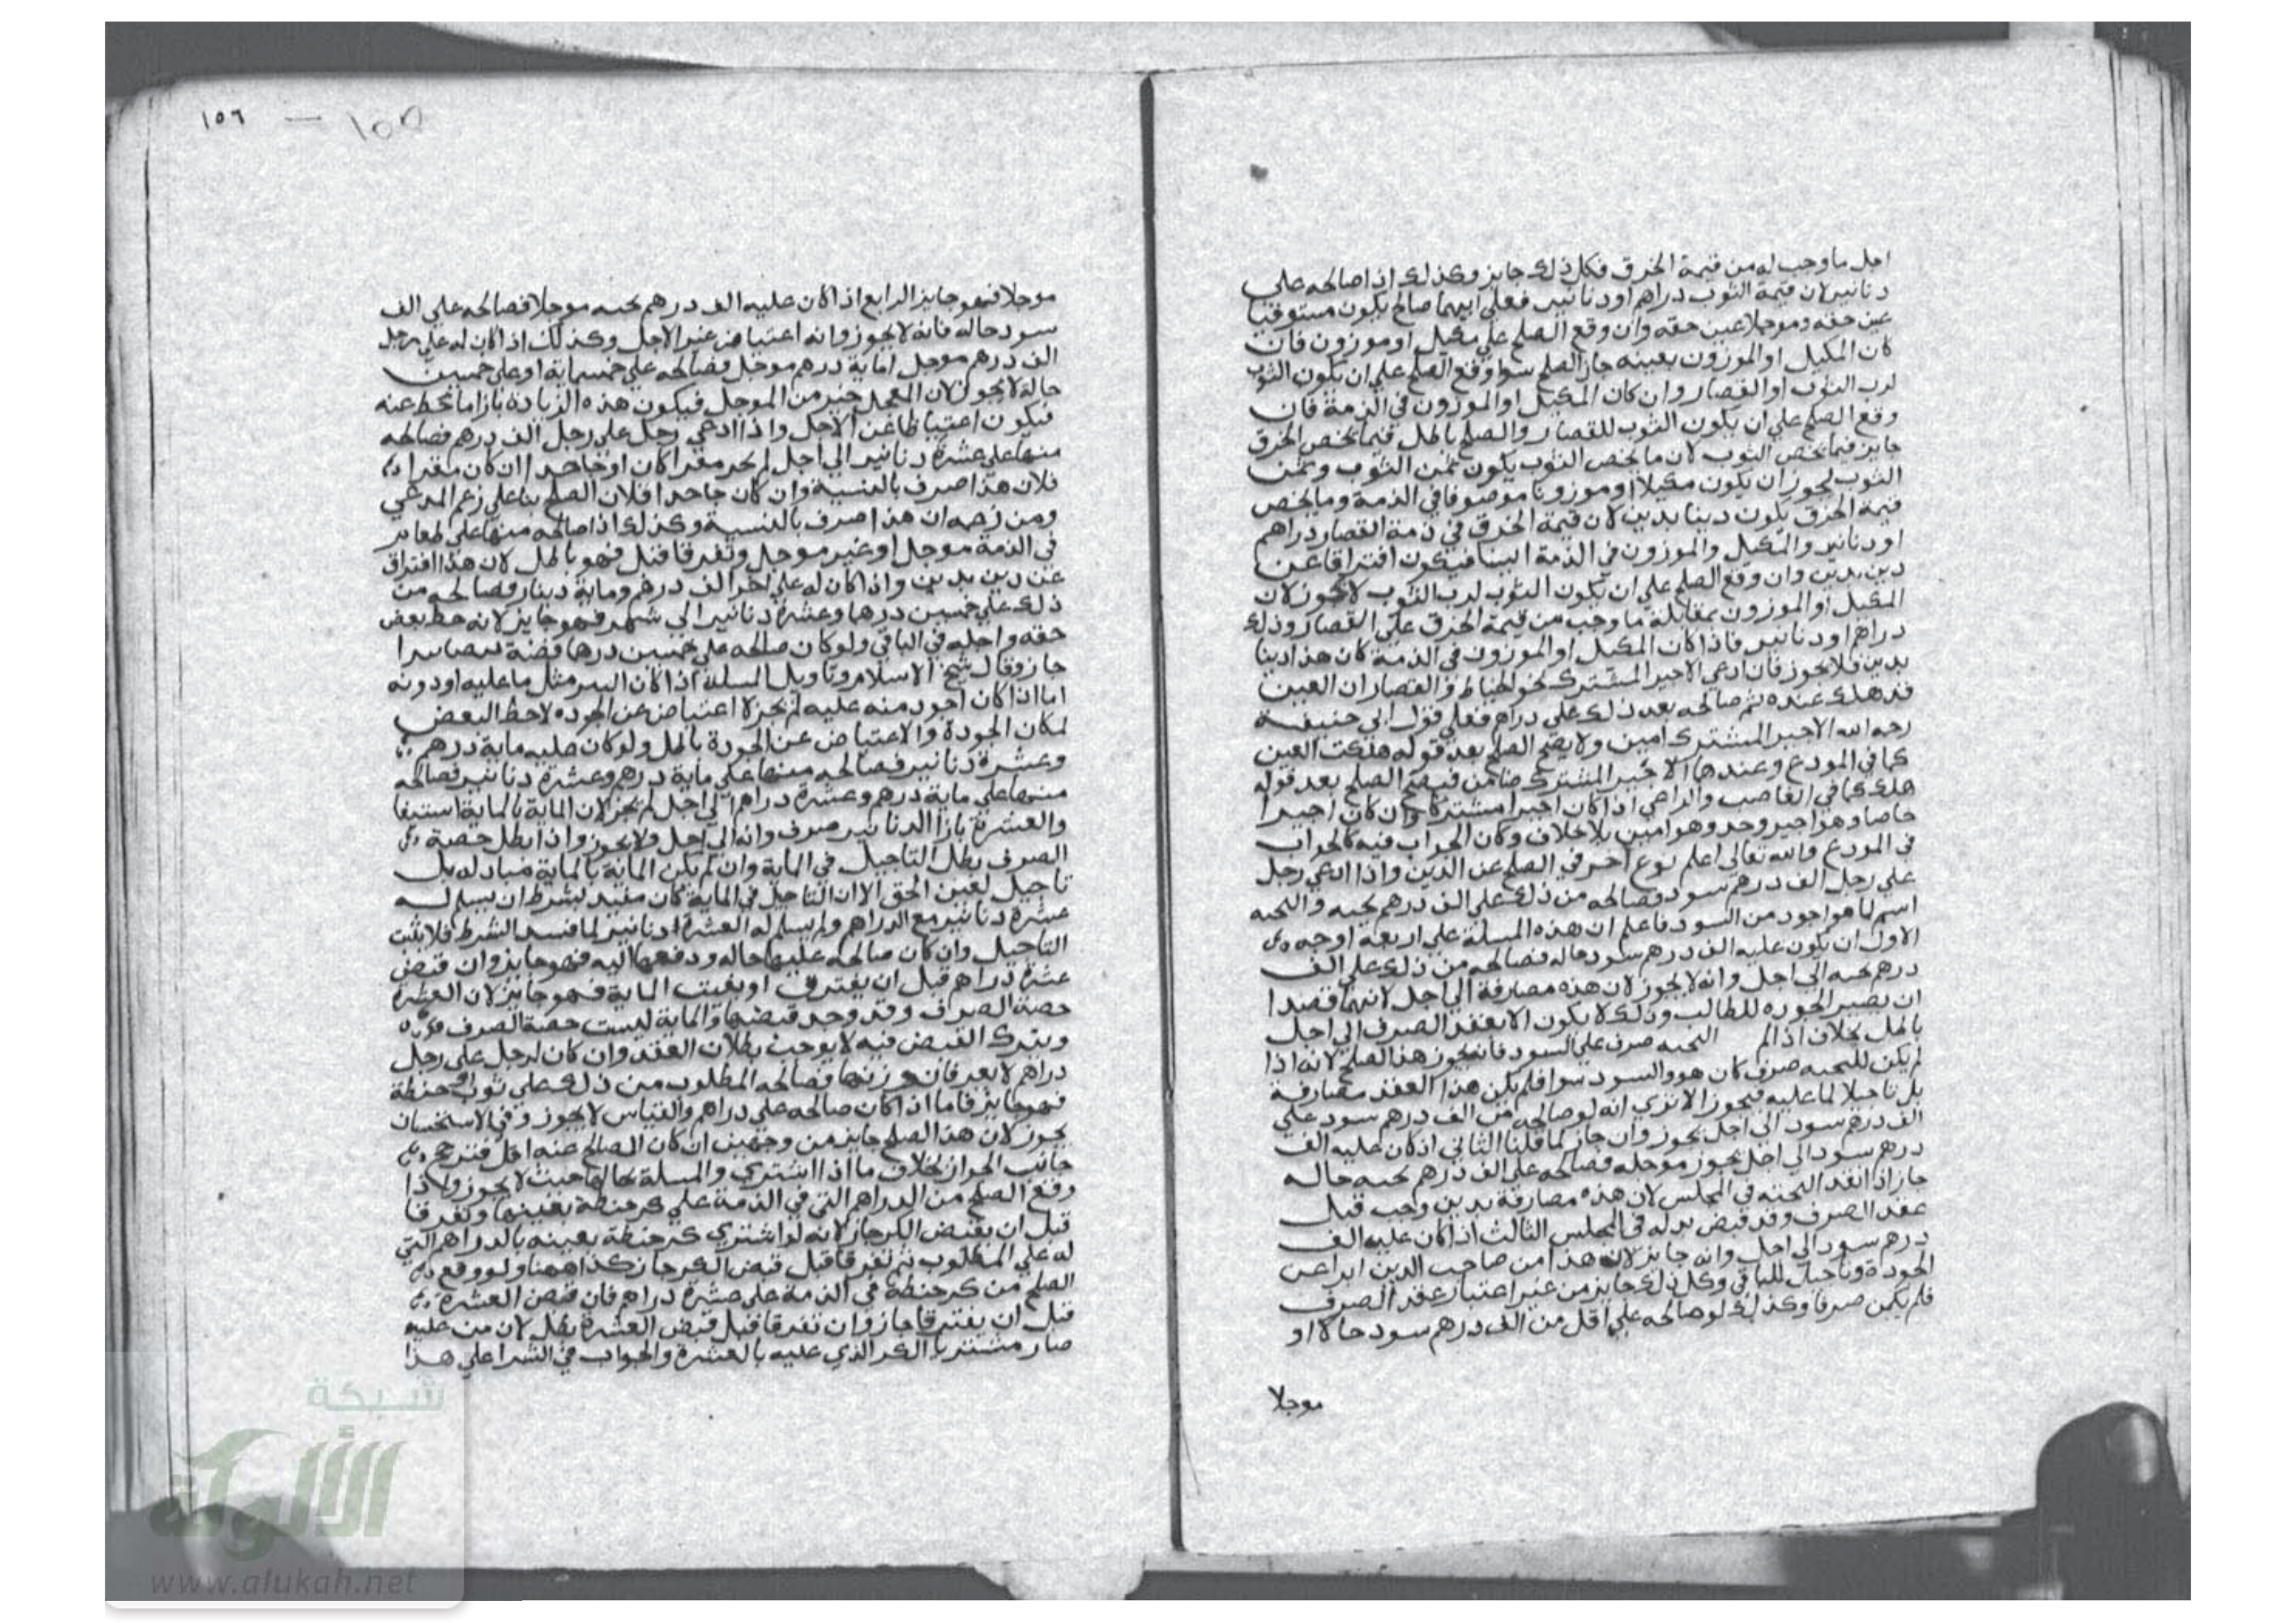 اجل ما وجب له من قيمة الخرق فكل ذلك جايز وكذلك اذا صالحه على
دنانير لان قيمة الثوب دراهم او دنانير فعلى ايهما صالح يكون مستوفيا
عين حقه وموجلا عين حقه وان وقع الصلح على مكيل او موزون فان
كان المكيل او الموزون بعينه جاز الصلح سوا وقع الصلح على ان يكون الثوب
لرب الثوب او القصار وان كان المكيل او الموزون في الذمة فان
وقع الصلح على ان يكون الثوب للقصار والصلح باطل فيما يخص الخرق
جايز فيما يخص الثوب لان ما يخص الثوب يكون ثمن الثوب وثمن
الثوب يجوز ان يكون مكيلا او موزونا موصوفا في الذمة وما يخص
قيمة الخرق يكون دينا بدين لان قيمة الخرق في ذمة القصار دراهم
او دنانير والمكيل والموزون في الذمة ايضا فيكون افتراقا عن
دين بدين وان وقع الصلح على ان يكون الثوب لرب الثوب لا يجوز لان
المكيل او الموزون بمقابلة ما وجب من قيمة الخرق على القصار وذلك
دراهم او دنانير فاذا كان المكيل او الموزون في الذمة كان هذا دينا
بدين فلا يجوز فان ادعى الاجير المشترك نحو الخياط والقصار ان العين
قد هلك عنده ثم صالحه بعد ذلك على دراهم فعلى قول ابي حنيفة
رحمه الله الاجير المشترك امين ولا يصح الصلح بعد قوله هلكت العين
كما في المودع وعندهما الاجير المشترك ضامن فيصح الصلح بعد قوله
هلك كما في الغاصب والراعي اذا كان اجيرا مشتركا وان كان اجيرا
خاصا وهو اجير وحد وهو امين بلا خلاف وكان الجواب فيه كالجواب
في المودع والله تعالى اعلم نوع اخر في الصلح عن الدين واذا ادعى رجل
على رجل الف درهم سود فصالحه من ذلك على الف درهم نجيه والنجيه
اسم لما هو اجود من السود فاعلم ان هذه المسلة على اربعة اوجه
الاول ان يكون عليه الف درهم سود حاله فصالحه من ذلك على الف
درهم نجيه الى اجل وانه لا يجوز لان هذه مصارفة الى اجل لانهما قصدا
ان يصير الجوده للطالب وذلك لا يكون الا بعقد الصرف الى اجل
باطل بخلاف اذا لم النجيه صرف على السود فانه يجوز هذا الصلح لانه اذا
لم يكن للنجيه صرف كان هو والسود سوا فلم يكن هذا العقد مصارفة
بل تاجيلا لما عليه فيجوز الا ترى انه لو صالحه من الف درهم سود على
الف درهم سود الى اجل يجوز وان جاز لما قلنا الثاني اذ كان عليه الف
درهم سود الى اجل يجوز موجله فصالحه على الف درهم نجيه حاله
جاز اذا نقد النجيه في المجلس لان هذه مصارفة بدين وجب قبل
عقد الصرف وقد قبض بدله في المجلس الثالث اذا كان عليه الف
درهم سود الى اجل وانه جايز لان هذا من صاحب الدين ابرا عن
الجودة وتاجيل للباقي وكل ذلك جايز من غير اعتبار عقد الصرف
فلم يكن صرفا وكذلك لو صالحه على اقل من الف درهم سود حالا او
موجلا
١٥٦ — ١٥٥
موجلا فهو جايز الرابع اذا كان عليه الف درهم نجيه موجلا فصالحه على الف
سود حاله فانه لا يجوز وانه اعتياض عن الاجل وكذلك اذا كان له على رجل
الف درهم موجل او ماية درهم موجل فصالحه على خمسماية او على خمسين
حالة لا يجوز لان المعجل خير من الموجل فيكون هذه الزيادة بازا ما يحط عنه
فيكون اعتياضا عن الاجل واذا ادعى رجل على رجل الف درهم فصالحه
منها على عشرة دنانير الى اجل لم يجز مقرا كان او جاحدا ان كان مقرا
فلان هذا صرف بالنسية وان كان جاحدا فلان الصلح بنا على زعم المدعي
ومن زعمه ان هذا صرف بالنسية وكذلك اذا صالحه منها على طعام
في الذمة موجل او غير موجل وتفرقا قبل فهو باطل لان هذا افتراق
عن دين بدين واذا كان له على اخر الف درهم وماية دينار فصالحه من
ذلك على خمسين درهما وعشرة دنانير الى شهر فهو جايز لانه حط بعض
حقه واجله في الباقي ولو كان صالحه على خمسين درهما فضة بيضا
جاز وقال شيخ الاسلام وتاويل المسلة اذا كان التبر مثل ما عليه او دونه
اما اذا كان اجود منه عليه لم يجز لا اعتياض عن الجوده لا حط البعض
لمكان الجودة والاعتياض عن الجودة باطل ولو كان عليه ماية درهم
وعشرة دنانير فصالحه منها على ماية درهم وعشرة دنانير فصالحه
منها على ماية درهم وعشرة دراهم الى اجل لم يجز لان الماية بالماية استيفا
والعشرة بازا الدنانير صرف وانه الى اجل ولا يجوز واذا بطل حصة
الصرف بطل التاجيل في الماية وان لم يكن الماية بالماية مبادله بل
تاجيل لعين الحق الا ان التاجيل في الماية كان مقيد بشرط ان يسلم له
عشرة دنانير مع الدراهم ولم يسلم له العشرة دنانير لما فسد الشرط فلا يثبت
التاجيل وان كان صالحه عليها حاله ودفعها اليه فهو جايز وان قبض
عشرة دراهم قبل ان يفترق او بقيت الماية فهو جايز لان العشرة
حصة الصرف وقد وجد قبضها والماية ليست حصة الصرف
وبترك القبض فيه لا يوجب بطلان العقد وان كان لرجل على رجل
دراهم لا يعرفان وزنها فصالحه المطلوب من ذلك على ثوب او حنطة
فهو جايز فاما اذا كان صالحه على دراهم والقياس لا يجوز وفي الاستحسان
يجوز لان هذا الصلح جايز من وجهين ان كان المصالح عنه اقل فترجح
جانب الجواز بخلاف ما اذا اشترى والمسلة بحالها حيث لا يجوز واذا
وقع الصلح من الدراهم التي في الذمة على كر حنطة بعينها وتفرقا
قبل ان يقبض الكر جاز لانه لو اشترى كر حنطة بعينه بالدراهم التي
له على المطلوب ثم تفرقا قبل قبض الكر جاز كذا ههنا ولو وقع
الصلح من كر حنطة في الذمة على عشرة دراهم فان قبض العشرة
قبل ان يفترقا جاز وان تفرقا قبل قبض العشرة بطل لان من عليه
صار مشتريا الكر الذي عليه بالعشرة والجواب في الشرا على هذا
شبكة
الألوكة
www.alukah.net